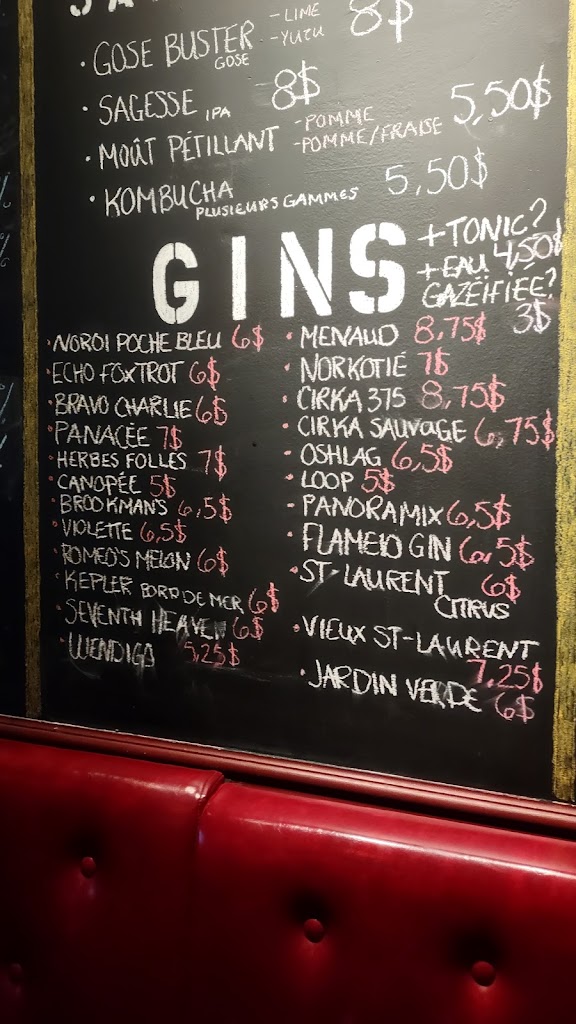 · GOSE BUSTER - LIME 8$
GOSE - YUZU
· SAGESSE IPA 8$
· MOÛT PÉTILLANT - POMME 5,50$
- POMME/FRAISE
· KOMBUCHA 5,50$
PLUSIEURS GAMMES
GINS
+ TONIC?
4,50$
+ EAU
GAZÉIFIÉE?
3$
· NOROI POCHE BLEU 6$
· ECHO FOXTROT 6$
· BRAVO CHARLIE 6$
· PANACÉE 7$
· HERBES FOLLES 7$
· CANOPÉE 5$
· BROOKMAN'S 6,5$
· VIOLETTE 6,5$
· ROMEO'S MELON 6$
· KEPLER BORD DE MER 6$
· SEVENTH HEAVEN 6$
· WENDIGO 5,25$
· MENAUD 8,75$
· NORKOTIÉ 7$
· CIRKA 375 8,75$
· CIRKA SAUVAGE 6,75$
· OSHLAG 6,5$
· LOOP 5$
· PANORAMIX 6,5$
· FLAMEID GIN 6,5$
· ST-LAURENT 6$
CITRUS
· VIEUX ST-LAURENT
7,25$
· JARDIN VERDE 6$